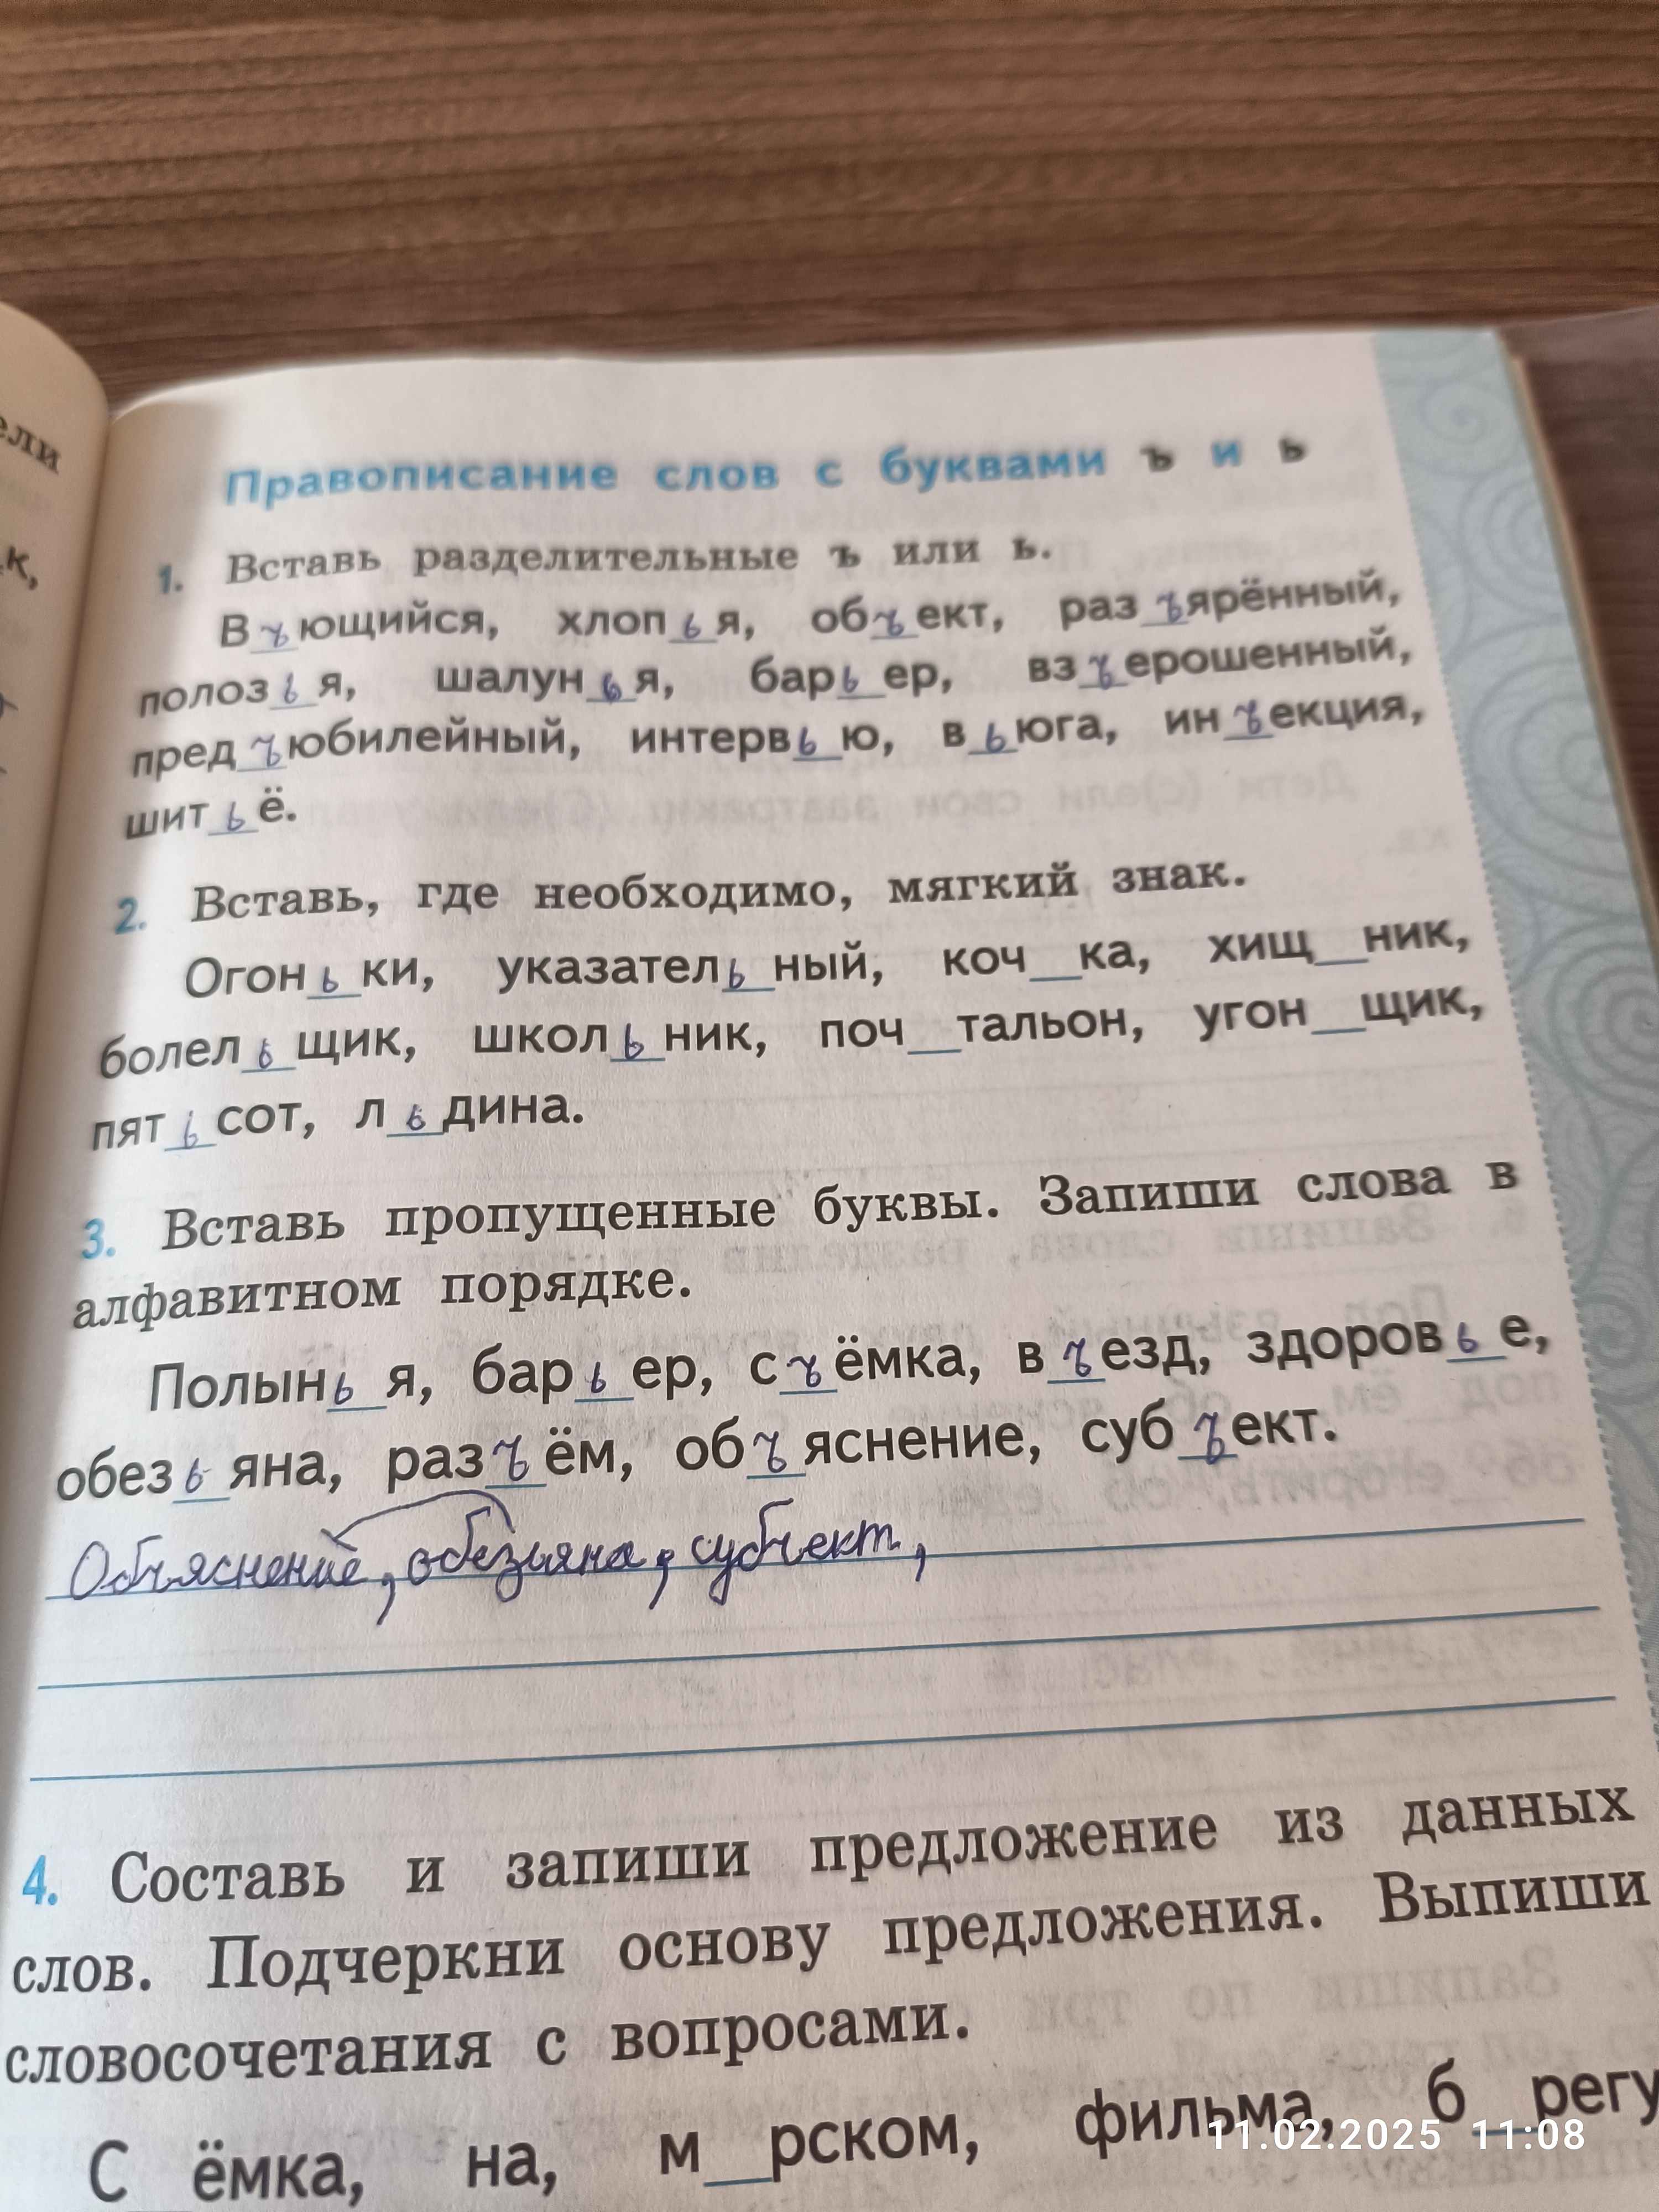 ели
к,
Правописание слов с буквами ъ и ь
1. Вставь разделительные ъ или ь.
Въющийся, хлопья, объект, разъярённый,
полозья, шалунья, барьер, взъерошенный,
предъюбилейный, интервью, вьюга, инъекция,
шитьё.
2. Вставь, где необходимо, мягкий знак.
Огоньки, указательный, коч__ка, хищ__ник,
болельщик, школьник, поч__тальон, угон__щик,
пятьсот, льдина.
3. Вставь пропущенные буквы. Запиши слова в
алфавитном порядке.
Полынья, барьер, съёмка, въезд, здоровье,
обезьяна, разъём, объяснение, субъект.
Объяснение, обезьяна, субъект,
4. Составь и запиши предложение из данных
слов. Подчеркни основу предложения. Выпиши
словосочетания с вопросами.
С__ёмка, на, м__рском, фильма, б__регу
11.02.2025 11:08